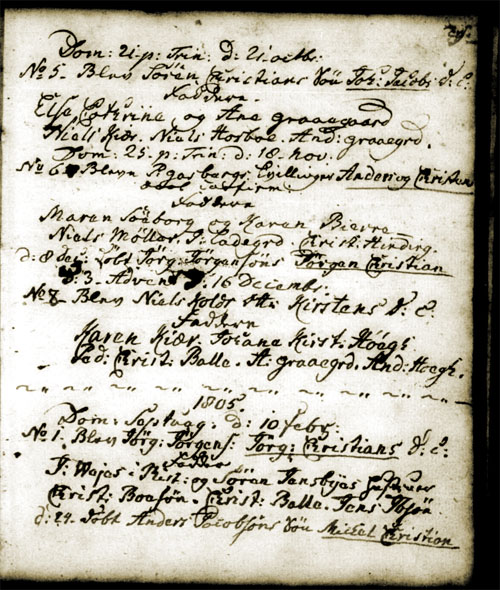 Dom: 21. p: Trin: d: 21. octbr:
No 5. Blev Sören Christians Sön Joh: Jacob d: C:
Faddere.
Else Cathrine og Ane graaegaard
Niels Kiær. Niels Horboe. And: graaegrd.
Dom: 25. p: Trin: d: 18. nov.
No 6. Blev Tvillinger Anders og Christen
Faddere
Maren Söeborg og Karen Bierre
Niels Möller. P: Ladegrd. Christ: Hindirg.
d: 8 dec: döbt Jörg: Jörgensöns Jörgen Christian
d: 3. Advent d: 16 Decembr.
No 8. Blev Niels Kolds Kirstens d: C.
Faddere
Karen Kiær. Johane Kirst: Höegs
Christ: Balle. A: graaegrd. And: Hoegh.
1805.
Dom: d: 10 febr:
No 1. Blev Jörg: Jörgens: Jörg: Christians d: C.
Faddere
og Sören Jensböjes
Christ: Boesön. Christ: Balle. Jens Ibsön
d: 24. döbt Anders Jacobsöns Sön Michel Christian